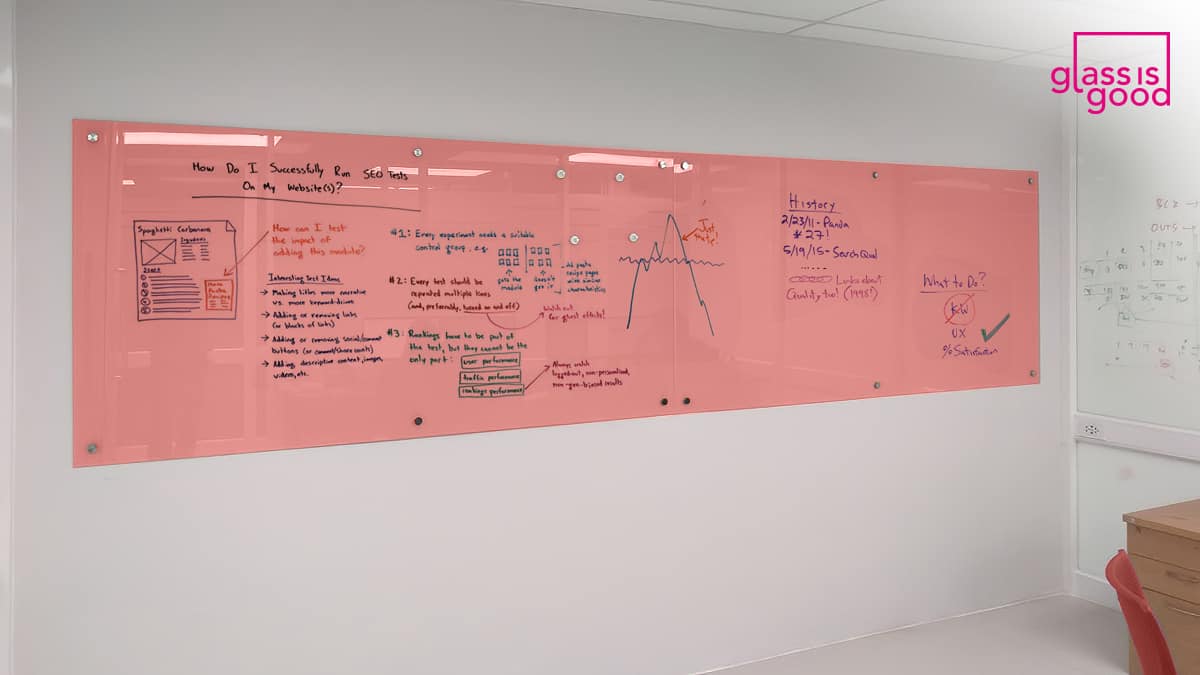 glass is
good
How Do I Successfully Run SEO Tests
On My Website(s)?
Spaghetti Carbonara
Ingredients
How can I test
the impact of
adding this module?
Interesting Test Ideas
→ Making titles more narrative
vs. more keyword-driven
→ Adding or removing tabs
(or blocks of links)
→ Adding or removing social/comment
buttons (or comment/share counts)
→ Adding descriptive content, images,
videos, etc.
#1: Every experiment needs a suitable
control group. e.g.
gets the
module
doesn't
get it
#2: Every test should be
repeated multiple times
(and, preferably, turned on and off)
Watch out
for ghost effects!
#3: Rankings have to be part of
the test, but they cannot be the
only part:
user performance
traffic performance
rankings performance
Always watch
logged-out, non-personalized,
non-geo-biased results
Just
History
2/23/11 - Panda
#27!
5/19/15 - Search Qual
......
Looks about
Quality too! (1998!)
What to Do?
KW
UX
% Satisfaction
OUTS